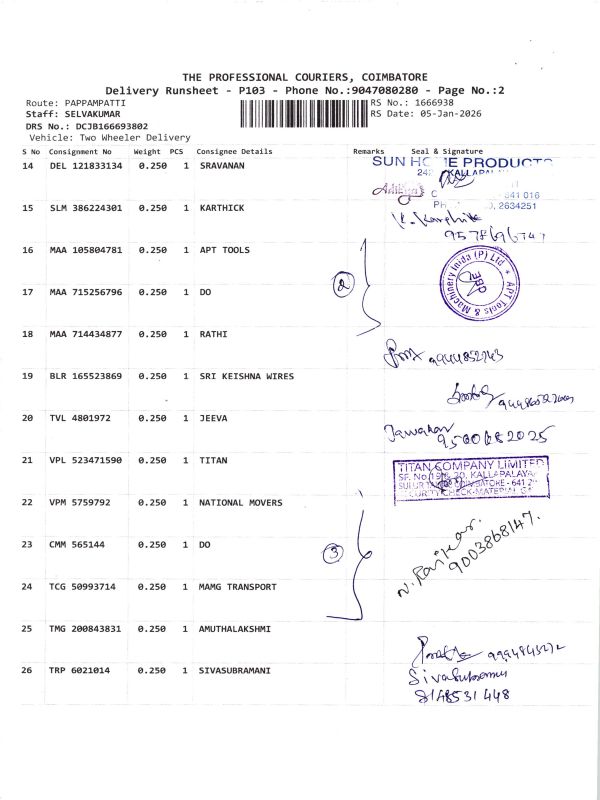 THE PROFESSIONAL COURIERS, COIMBATORE
Delivery Runsheet - P103 - Phone No.:9047080280 - Page No.:2
Route: PAPPAMPATTI
RS No.: 1666938
Staff: SELVAKUMAR
RS Date: 05-Jan-2026
DRS No.: DCJB166693802
Vehicle: Two Wheeler Delivery
S No Consignment No Weight PCS Consignee Details Remarks Seal & Signature
14 DEL 121833134 0.250 1 SRAVANAN
SUN HOME PRODUCTS
15 SLM 386224301 0.250 1 KARTHICK
641 016
2634251
K. Karthik
16 MAA 105804781 0.250 1 APT TOOLS
APT Tools & Machinery Inida (P) Ltd
②
17 MAA 715256796 0.250 1 DO
18 MAA 714434877 0.250 1 RATHI
9944852743
19 BLR 165523869 0.250 1 SRI KEISHNA WIRES
20 TVL 4801972 0.250 1 JEEVA
21 VPL 523471590 0.250 1 TITAN
TITAN COMPANY LIMITED
KALLAPALAYA
22 VPM 5759792 0.250 1 NATIONAL MOVERS
23 CMM 565144 0.250 1 DO
③
9003868147.
24 TCG 50993714 0.250 1 MAMG TRANSPORT
25 TMG 200843831 0.250 1 AMUTHALAKSHMI
26 TRP 6021014 0.250 1 SIVASUBRAMANI
8148531448